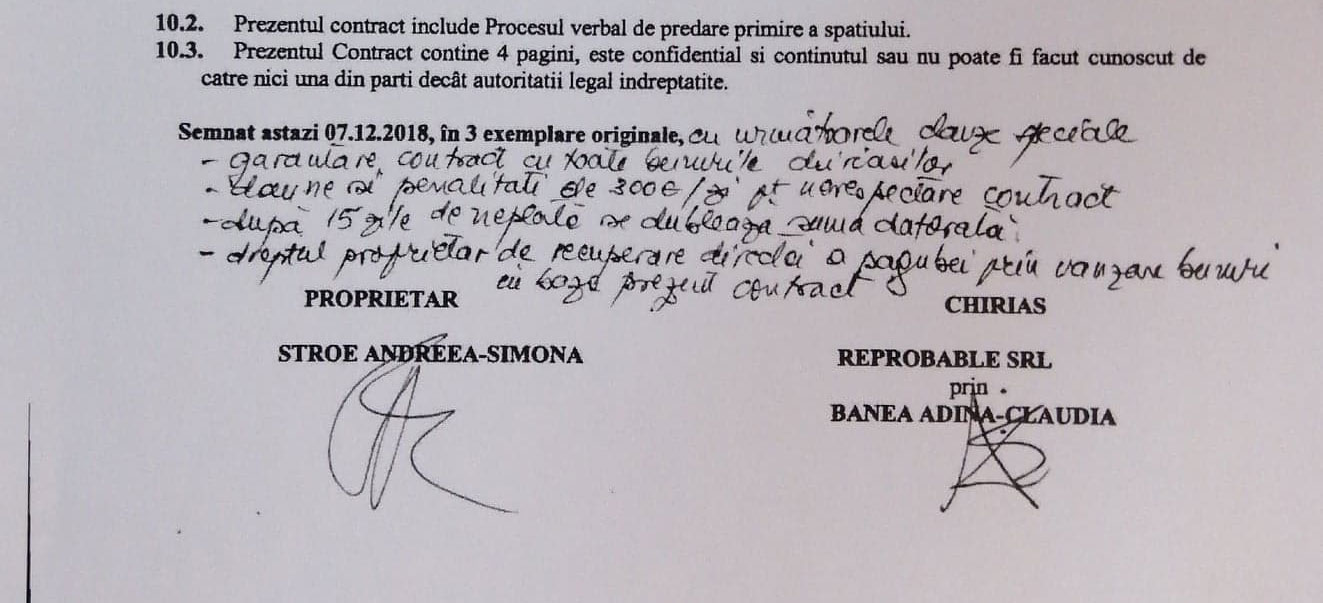 10.2. Prezentul contract include Procesul verbal de predare primire a spatiului.
10.3. Prezentul Contract contine 4 pagini, este confidential si continutul sau nu poate fi facut cunoscut de
catre nici una din parti decât autoritatii legal indreptatite.
Semnat astazi 07.12.2018, în 3 exemplare originale, cu următoarele clauze speciale
- garantare contract cu toate bunurile chiriasilor
- daune si penalitati de 300€/zi pt nerespectare contract
- după 15 zile de neplată se dubleaza suma datorata;
- dreptul proprietar de recuperare directă a pagubei prin vanzare bunuri
PROPRIETAR
prezent contract
CHIRIAS
STROE ANDREEA-SIMONA
REPROBABLE SRL
prin
BANEA ADINA-CLAUDIA